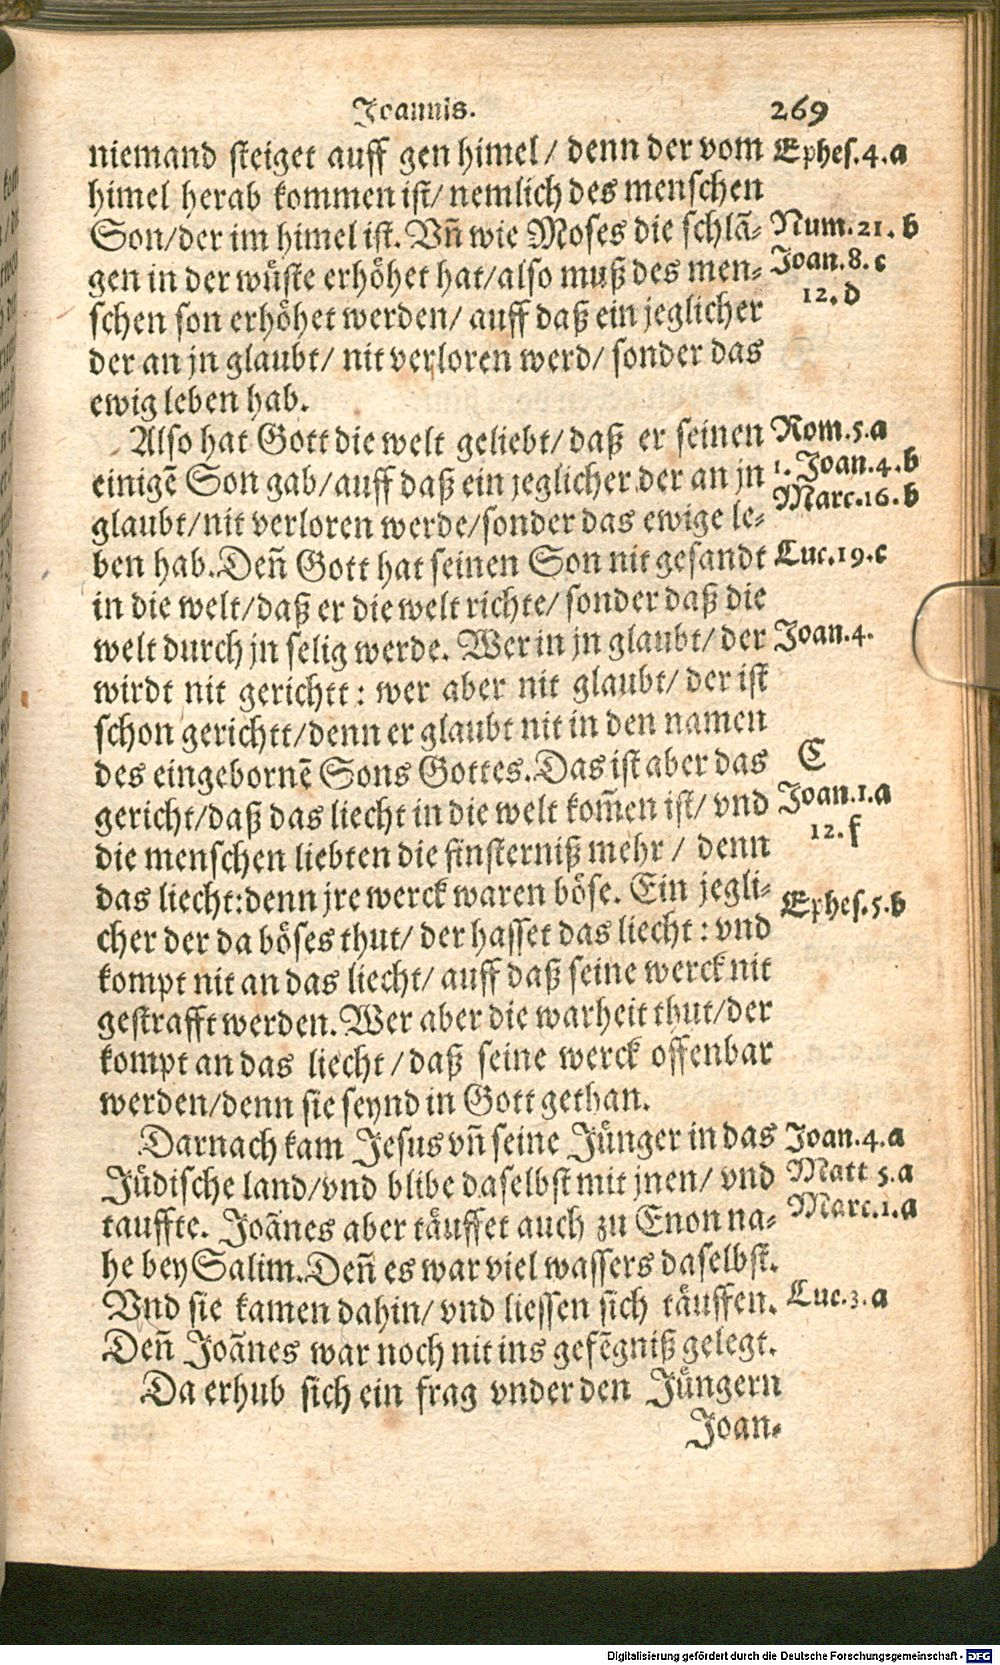 Joannis. 269
niemand steiget auff gen himel / denn der vom Ephes.4.a
himel herab kommen ist/ nemlich des menschen
Son/der im himel ist. Vñ wie Moses die schlã- Num.21.b
gen in der wüste erhöhet hat/also muß des men- Joan.8.c
schen son erhöhet werden/ auff daß ein jeglicher 12.d
der an jn glaubt/ nit verloren werd/ sonder das
ewig leben hab.
Also hat Gott die welt geliebt/ daß er seinen Rom.5.a
einigẽ Son gab/auff daß ein jeglicher der an jn 1.Joan.4.b
glaubt/nit verloren werde/sonder das ewige le- Marc.16.b
ben hab. Deñ Gott hat seinen Son nit gesandt Luc.19.c
in die welt/daß er die welt richte/ sonder daß die
welt durch jn selig werde. Wer in jn glaubt/ der Joan.4.
wirdt nit gerichtt: wer aber nit glaubt/ der ist
schon gerichtt/denn er glaubt nit in den namen
des eingebornẽ Sons Gottes. Das ist aber das C
gericht/daß das liecht in die welt kom̃en ist/ vnd Joan.1.a
die menschen liebten die finsterniß mehr / denn 12.f
das liecht:denn jre werck waren böse. Ein jegli- Ephes.5.b
cher der da böses thut/ der hasset das liecht: vnd
kompt nit an das liecht/ auff daß seine werck nit
gestrafft werden. Wer aber die warheit thut/der
kompt an das liecht /daß seine werck offenbar
werden/denn sie seynd in Gott gethan.
Darnach kam Jesus vñ seine Jünger in das Joan.4.a
Jüdische land/vnd blibe daselbst mit jnen/ vnd Matt 5.a
tauffte. Joãnes aber täuffet auch zu Enon na- Marc.1.a
he bey Salim. Deñ es war viel wassers daselbst.
Vnd sie kamen dahin/ vnd liessen sich täuffen. Luc.3.a
Deñ Joãnes war noch nit ins gefẽgniß gelegt.
Da erhub sich ein frag vnder den Jüngern
Joan-
Digitalisierung gefördert durch die Deutsche Forschungsgemeinschaft - DFG